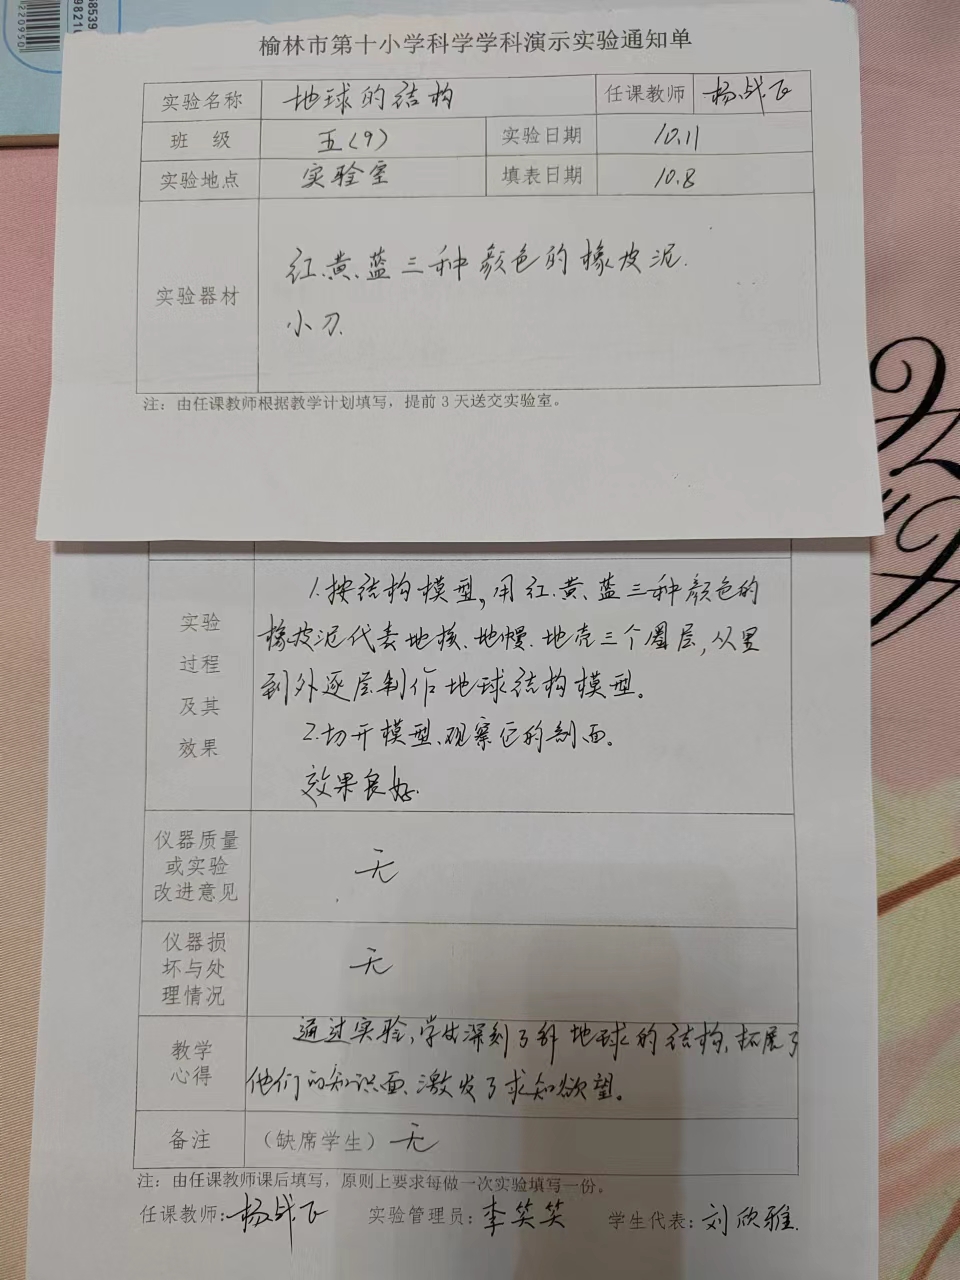 榆林市第十小学科学学科演示实验通知单
实验名称 地球的结构 任课教师 杨战飞
班 级 五(9) 实验日期 10.11
实验地点 实验室 填表日期 10.8
红、黄、蓝三种颜色的橡皮泥.
实验器材
小刀.
注：由任课教师根据教学计划填写，提前3天送交实验室。
实验
过程
及其
效果
1.按结构模型,用红、黄、蓝三种颜色的
橡皮泥代表地核、地幔、地壳三个圈层,从里
到外逐层制作地球结构模型。
2.切开模型、观察它的剖面。
效果良好.
仪器质量
或实验
改进意见
无
仪器损
坏与处
理情况
无
教学
心得
通过实验,学生深刻了解地球的结构,拓展了
他们的知识面、激发了求知欲望。
备注 （缺席学生）无
注：由任课教师课后填写，原则上要求每做一次实验填写一份。
任课教师:杨战飞 实验管理员:李笑笑 学生代表:刘欣雅.